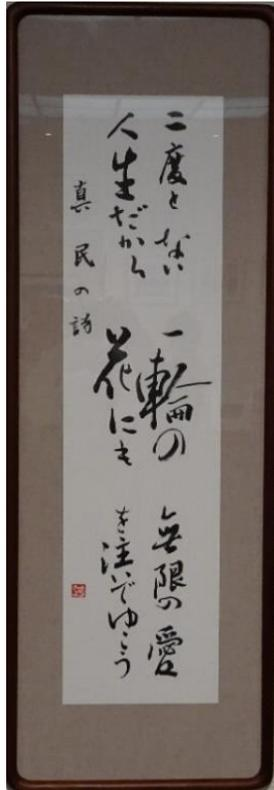 二度とない
人生だから
一輪の
花にも
無限の愛
を注いでゆこう
真民の詩